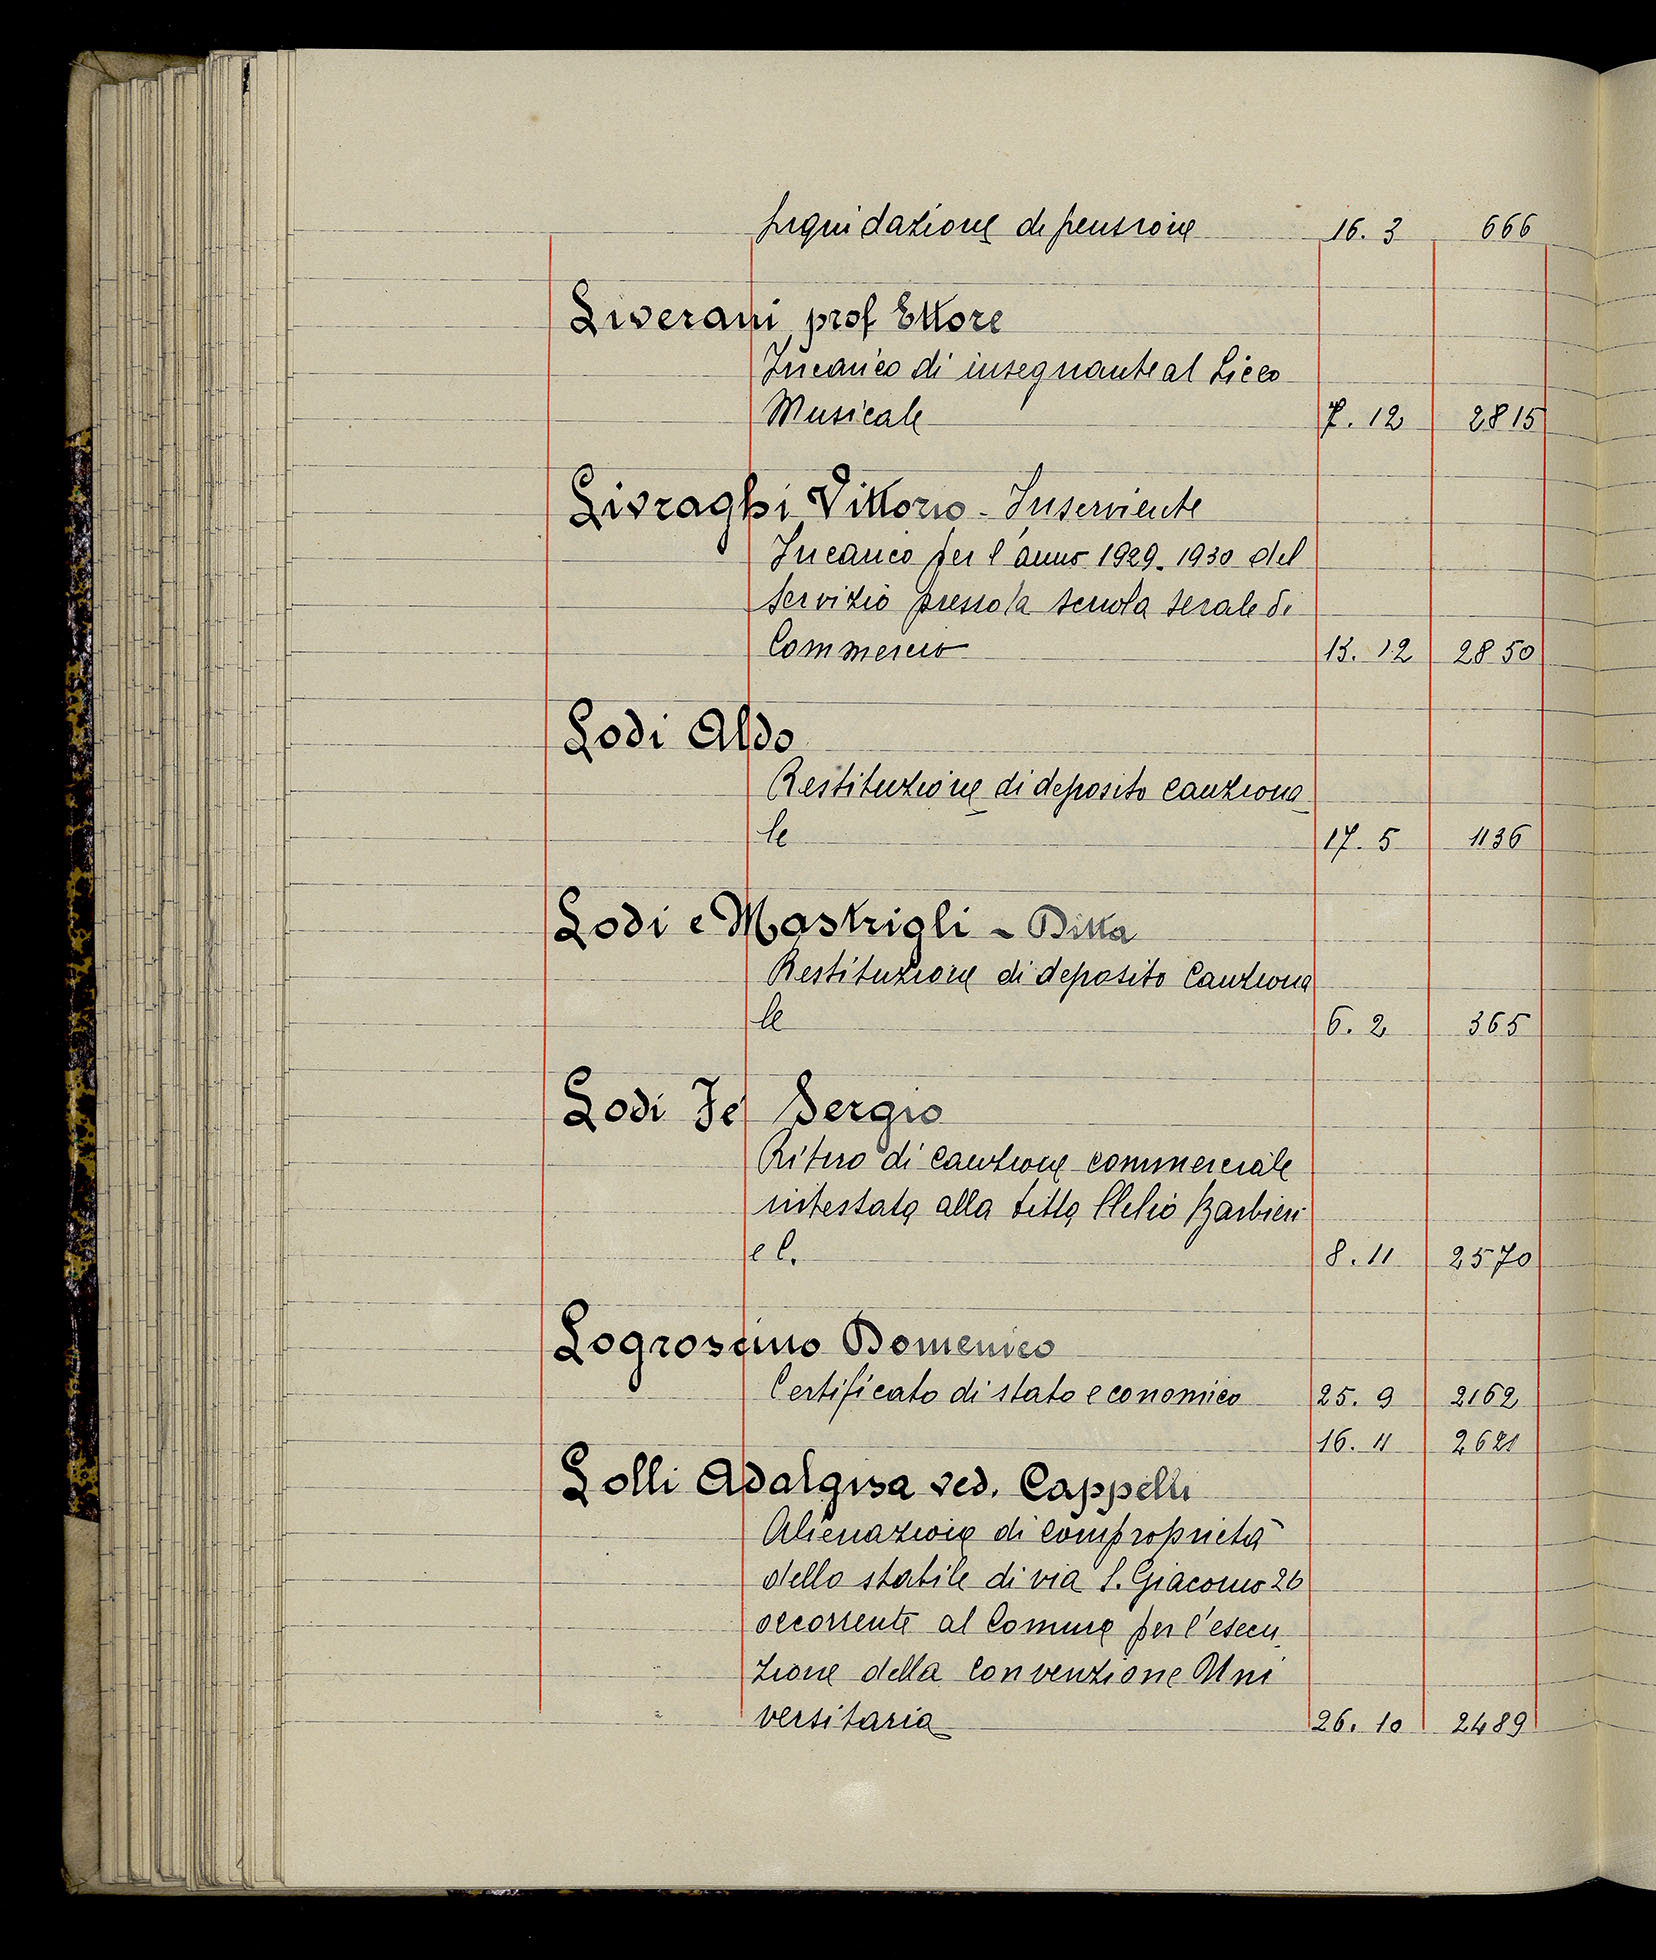 Liquidazione di pensione 16. 3 666
Liverani prof Ettore
Incarico di insegnante al Liceo
Musicale 7. 12 2815
Livraghi Vittorio - Inserviente
Incarico per l'anno 1929-1930 del
servizio presso la scuola serale di
Commercio 13. 12 2850
Lodi Aldo
Restituzione di deposito cauziona_
le 17. 5 1136
Lodi e Mastrigli - Ditta
Restituzione di deposito Cauziona
le 6. 2 365
Lodi Fe Sergio
Ritiro di cauzione commerciale
intestata alla ditta Clelio Barbieri
e C. 8. 11 2570
Logroscino Domenico
Certificato di stato economico 25. 9 2162
16. 11 2621
Lolli Adalgisa ved. Cappelli
Alienazione di comproprietà
dello stabile di via S. Giacomo 26
occorrente al Comune per l'esecu_
zione della Convenzione Uni
versitaria 26. 10 2489